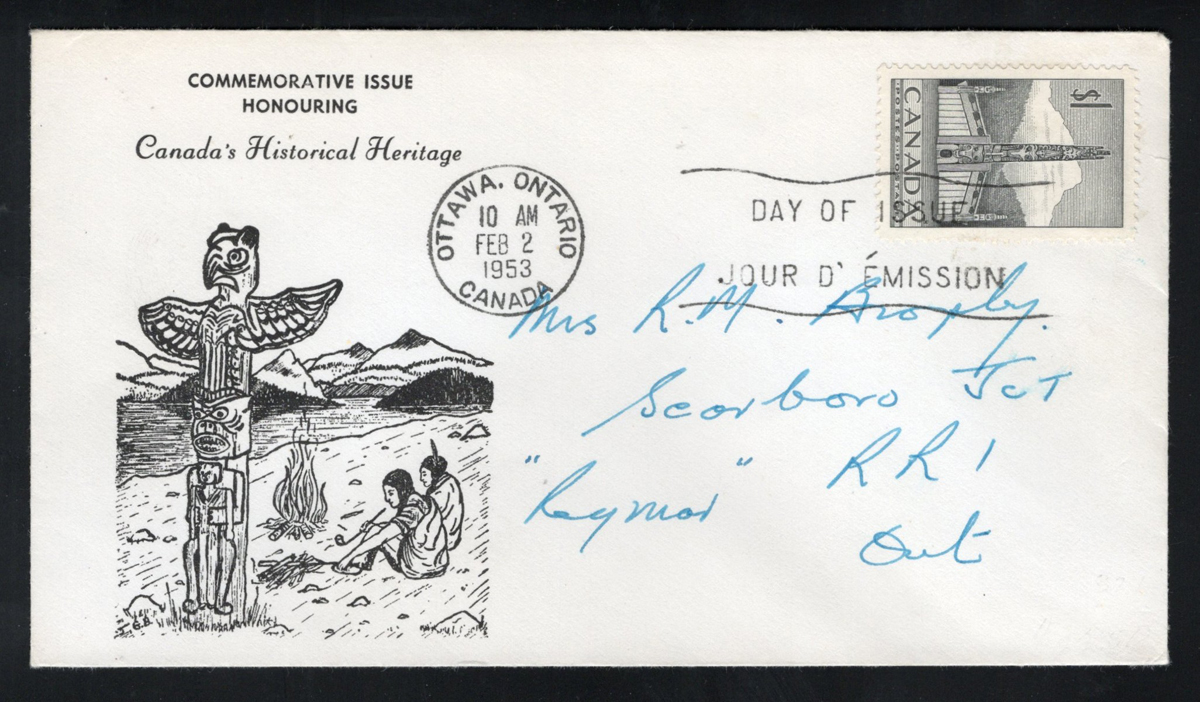 COMMEMORATIVE ISSUE
HONOURING
Canada's Historical Heritage
OTTAWA, ONTARIO
10 AM
FEB 2
1953
CANADA
$1
CANADA
POSTES POSTAGE
DAY OF ISSUE
JOUR D' ÉMISSION
Mrs R.M. Brophy.
Scarboro JcT
RR 1
"Reymar"
Ont
G.B.